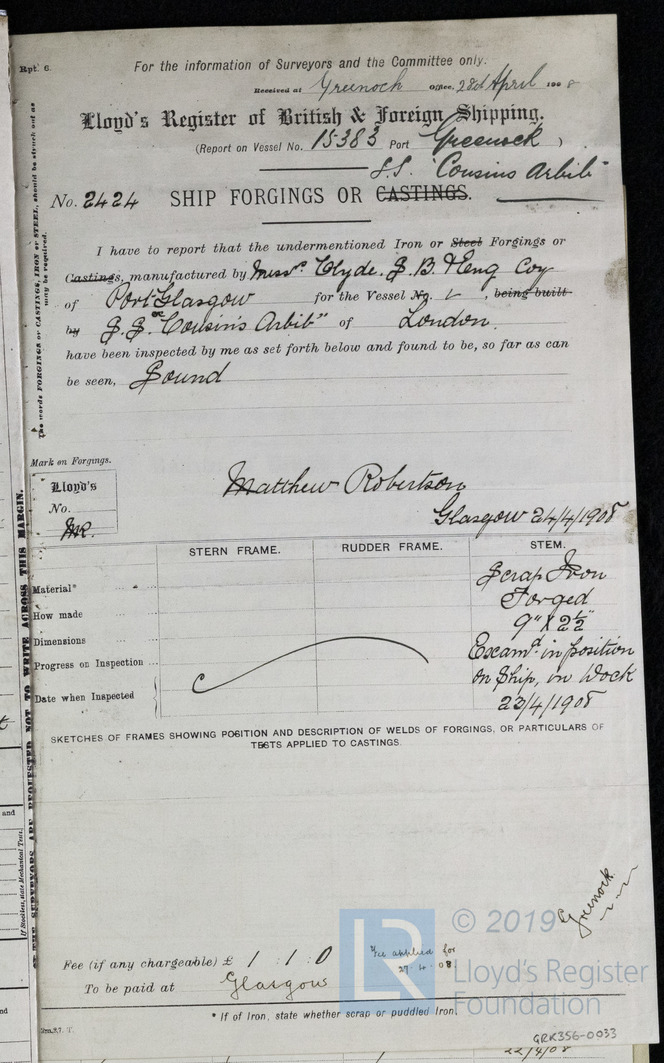 Rpt. 6.
For the information of Surveyors and the Committee only.
Received at Greenock Office, 28th April 1908
Lloyd's Register of British & Foreign Shipping.
(Report on Vessel No. 15383 Port Greenock )
S.S. "Cousins Arbib"
No. 2424 SHIP FORGINGS OR CASTINGS.
I have to report that the undermentioned Iron or Steel Forgings or
Castings, manufactured by Messrs. Clyde. S. B. & Eng Coy
of Port Glasgow for the Vessel No. , being built
by S.S. "Cousins Arbib" of London.
have been inspected by me as set forth below and found to be, so far as can
be seen, Sound
The words FORGINGS or CASTINGS, IRON or STEEL, should be struck out as
may be required.
Mark on Forgings.
Lloyd's
No.
MR.
Matthew Robertson
Glasgow 24/4/1908
STERN FRAME. RUDDER FRAME. STEM.
Material* Scrap Iron
How made Forged
Dimensions 9" X 2½"
Progress on Inspection Examd. in position
on Ship, in Dock
Date when Inspected 23/4/1908
SKETCHES OF FRAMES SHOWING POSITION AND DESCRIPTION OF WELDS OF FORGINGS, OR PARTICULARS OF
TESTS APPLIED TO CASTINGS.
THE SURVEYORS ARE REQUESTED NOT TO WRITE ACROSS THIS MARGIN.
and
nd
Greenock
Fee (if any chargeable) £ 1 : 1 : 0
Fee applied for
27. 4. 08
To be paid at Glasgow
* If of Iron, state whether scrap or puddled Iron.
© 2019
LR
Lloyd's Register
Foundation
GRK356-0033
22/4/08